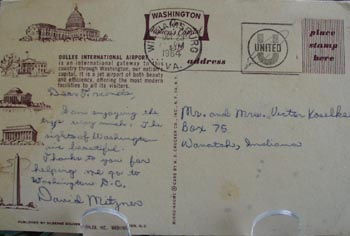 WASHINGTON
DULLES INTERNATIONAL AIRPORT
is an international gateway to this
country through Washington, our nation's
capital. It is a jet airport of both beauty
and efficiency, offering the most modern
facilities to all its visitors.
WILLIAMSBURG
PM
1964
VA.
UNITED
place
stamp
here
address
Dear Friends,
I am enjoying the
trip very much. The
sights of Washington
are beautiful.
Thanks to you for
helping me go to
Washington D.C.
David Metzner
Mr. and Mrs. Victor Koselke
Box 75
Wanatah, Indiana
PUBLISHED BY
INC.